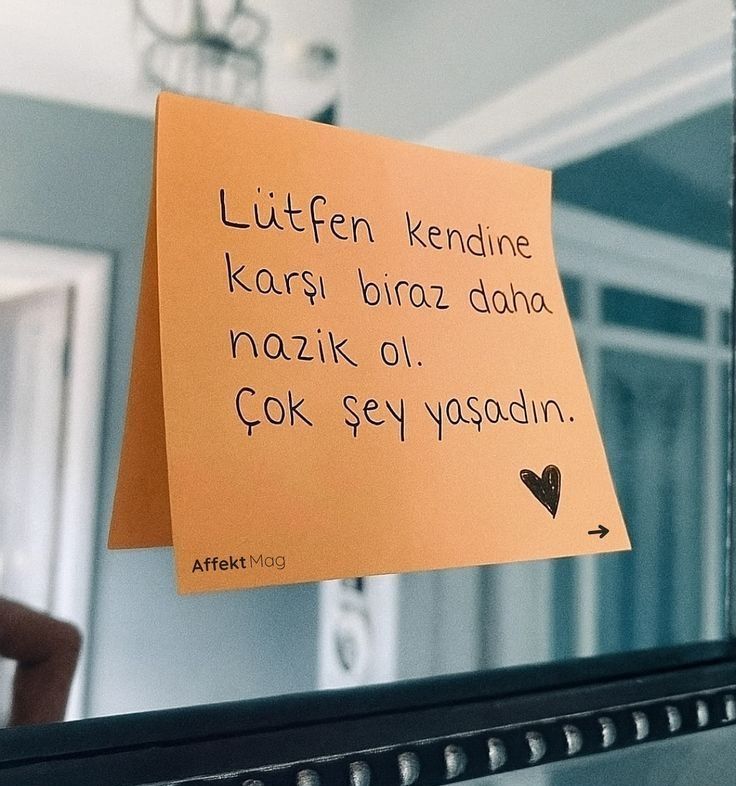 Lütfen kendine
karşı biraz daha
nazik ol.
Çok şey yaşadın.
AffektMag